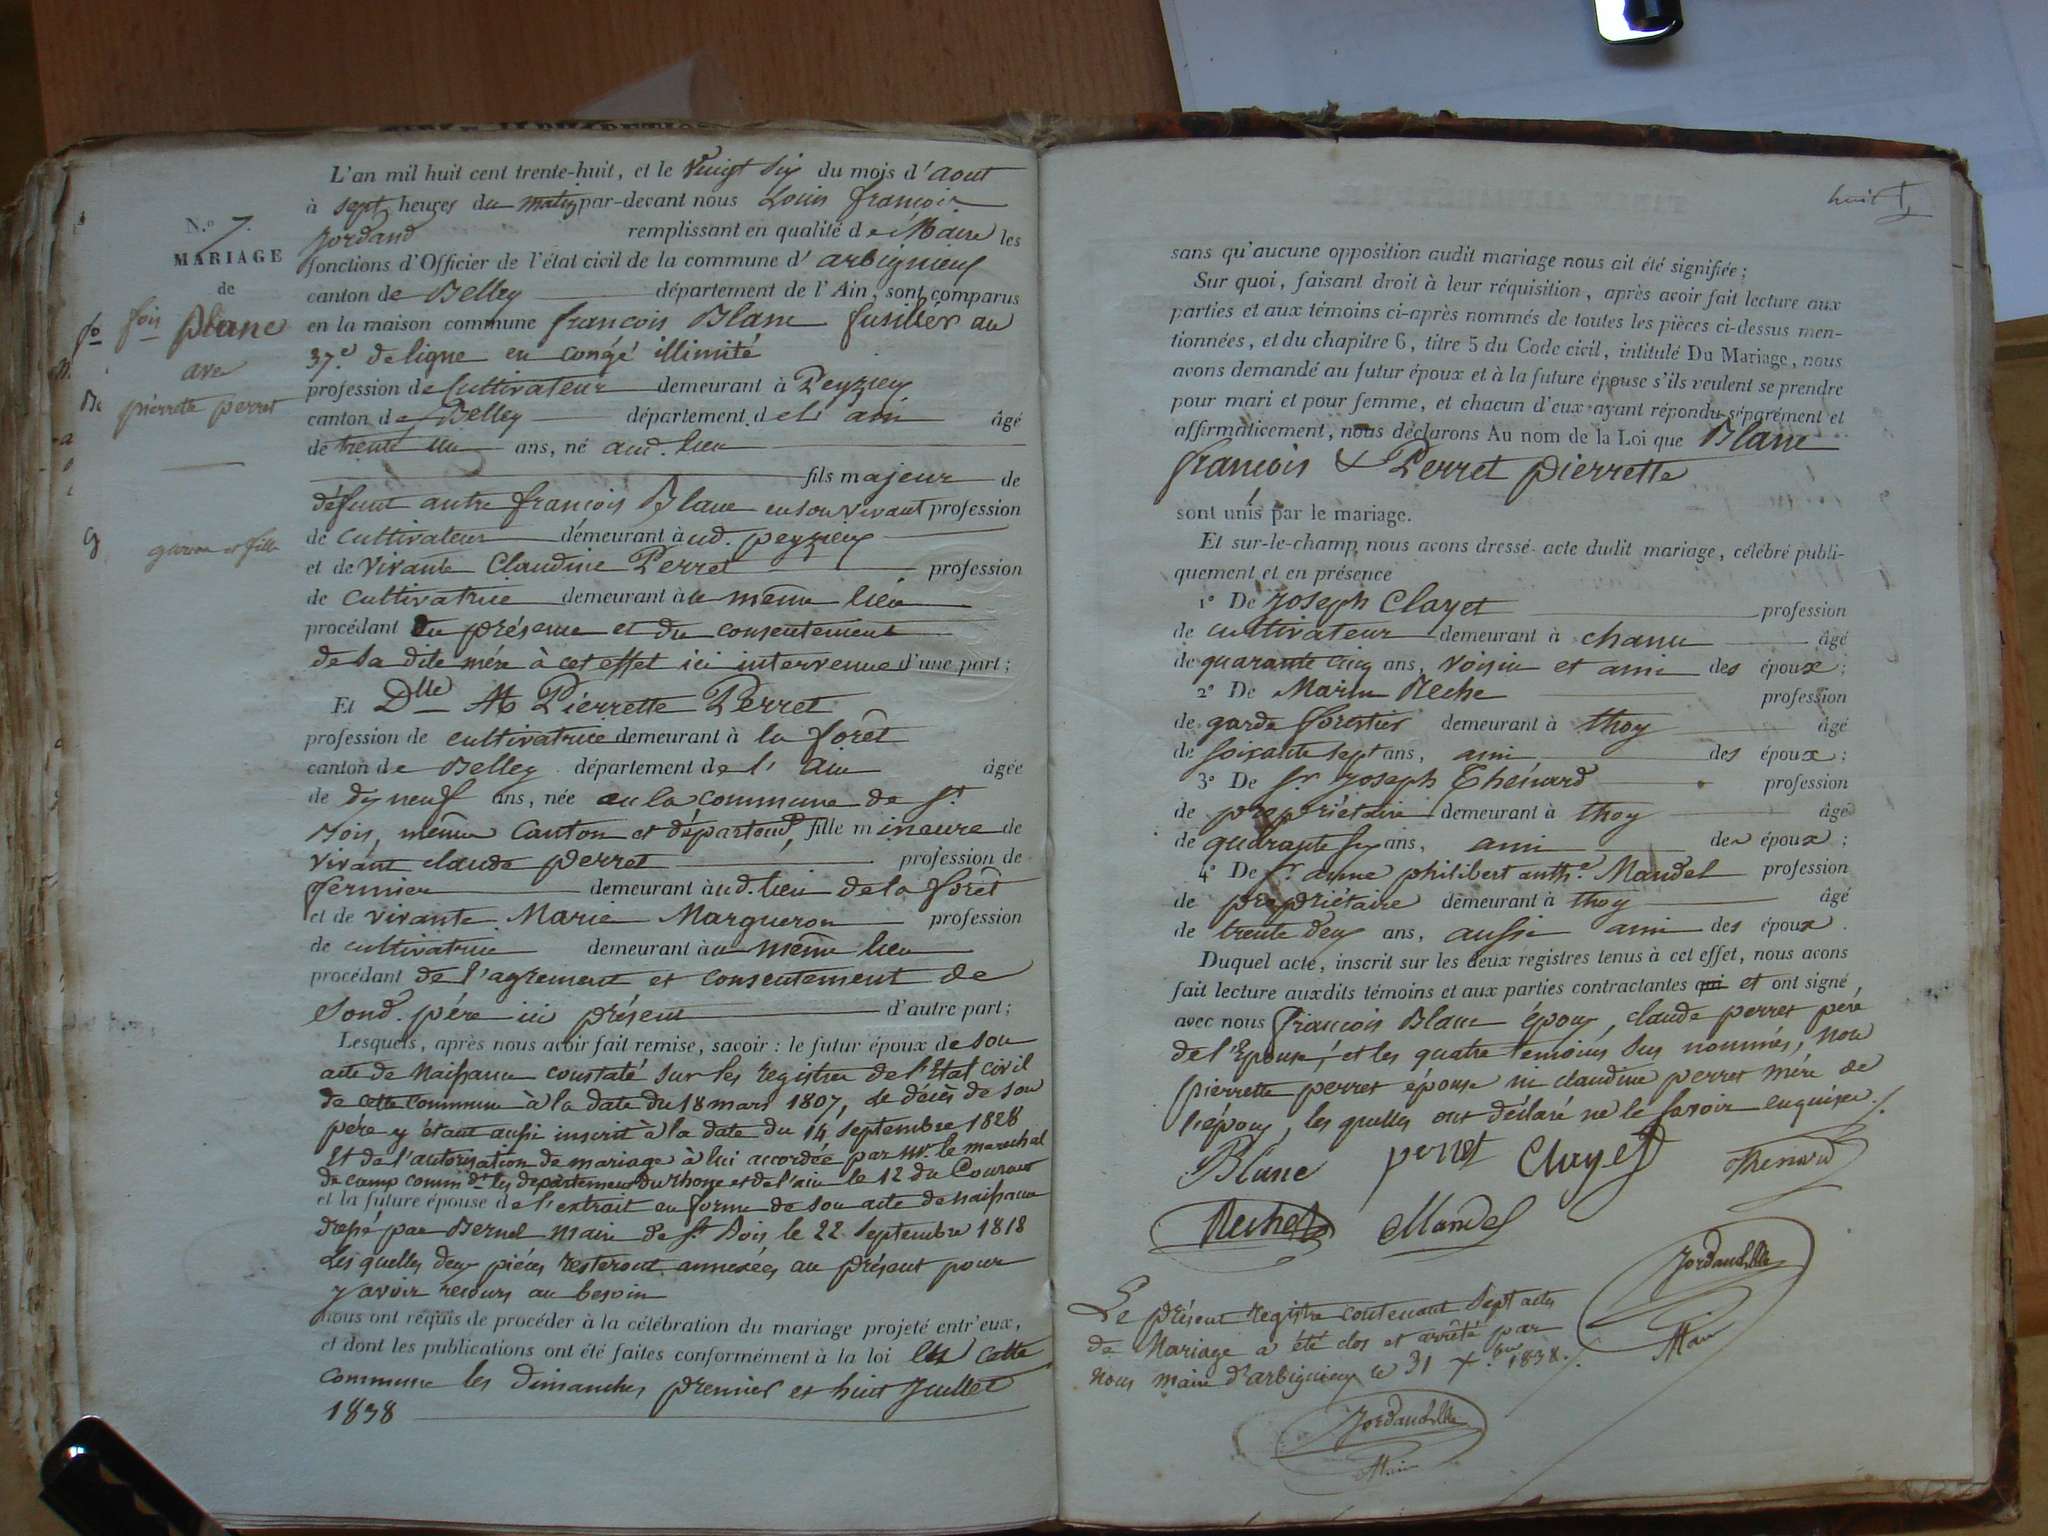 N.o 7.
MARIAGE
de
fois Blanc
avec
pierrette perret
garçon et fille
L'an mil huit cent trente-huit, et le vingt six du mois d'aout
à sept heures du matin par-devant nous Louis françois
Jordand remplissant en qualité de Maire les
fonctions d'Officier de l'état civil de la commune d'arbignieux
canton de Belley département de l'Ain, sont comparus
en la maison commune françois Blanc fusiller au
37.e de ligne en congé illimité
profession de Cultivateur demeurant à Peyzieu
canton de Belley département de l'ain âgé
de trente un ans, né aud. lieu
fils majeur de
défunt autre françois Blanc en son vivant profession
de Cultivateur demeurant à ud. peyzieu
et de vivante Claudine Perret profession
de Cultivatrice demeurant à u même lieu
procédant En présence et du consentement
de sa dite mére à cet effet ici intervenue d'une part;
Et Dlle Pierrette Perret
profession de cultivatrice demeurant à la forêt
canton de Belley département de l'ain âgée
de dix neuf ans, née en la commune de St
Bois, même Canton et départemt, fille mineure de
vivant claude perret profession de
fermier demeurant à ud. lieu de la forêt
et de vivante Marie Margueron profession
de cultivatrice demeurant à u même lieu
procédant de l'agrement et consentement de
sond. pére ici présent d'autre part;
Lesquels, après nous avoir fait remise, savoir : le futur époux de son
acte de Naissance constaté sur les registres de l'Etat civil
de cette commune à la date du 18 mars 1807, de décès de son
pére y étant aussi inscrit à la date du 14 septembre 1828
Et de l'autorisation de mariage à lui accordée par mr. le marechal
de camp commdt les departements du rhone et de l'ain le 12 du Courant
et la future épouse de l'extrait en forme de son acte de naissance
dressé par Bernel maire de St Bois le 22 septembre 1818
Les quelles deux piéces resteront annexées au présent pour
y avoir recours au besoin
nous ont requis de procéder à la célébration du mariage projeté entr'eux,
et dont les publications ont été faites conformément à la loi en cette
commune les dimanches premier et huit Juillet
1838
huit
sans qu'aucune opposition audit mariage nous ait été signifiée;
Sur quoi, faisant droit à leur réquisition, après avoir fait lecture aux
parties et aux témoins ci-après nommés de toutes les pièces ci-dessus men-
tionnées, et du chapitre 6, titre 5 du Code civil, intitulé Du Mariage, nous
avons demandé au futur époux et à la future épouse s'ils veulent se prendre
pour mari et pour femme, et chacun d'eux ayant répondu séparément et
affirmativement, nous déclarons Au nom de la Loi que Blanc
françois & Perret pierrette
sont unis par le mariage.
Et sur-le-champ nous avons dressé acte dudit mariage, célébré publi-
quement et en présence
1o De Joseph Clayet profession
de cultivateur demeurant à chanu âgé
de quarante cinq ans, voisin et ami des époux;
2o De Marin Reche profession
de garde forestier demeurant à thoy âgé
de soixante sept ans, ami des époux;
3o De Sr Joseph Thenard profession
de propriétaire demeurant à thoy âgé
de quarante six ans, ami des époux;
4o De Sr anne philibert anthe. Mandel profession
de propriétaire demeurant à thoy âgé
de trente deux ans, aussi ami des époux.
Duquel acte, inscrit sur les deux registres tenus à cet effet, nous avons
fait lecture auxdits témoins et aux parties contractantes qui et ont signé,
avec nous françois Blanc époux, claude perret pére
de l'Epouse, et les quatre temoins sus nommés, Non
pierrette perret épouse ni claudine perret mére de
l'époux, les quelles ont déclaré ne le savoir enquises./.
Blanc perret Clayet Thenard
Reche Mandel
Jordand
Maire
Le présent registre contenant sept actes
de Mariage a été clos et arrêté par
nous maire d'arbignieux le 31 Xbre 1838./.
Jordand
Maire